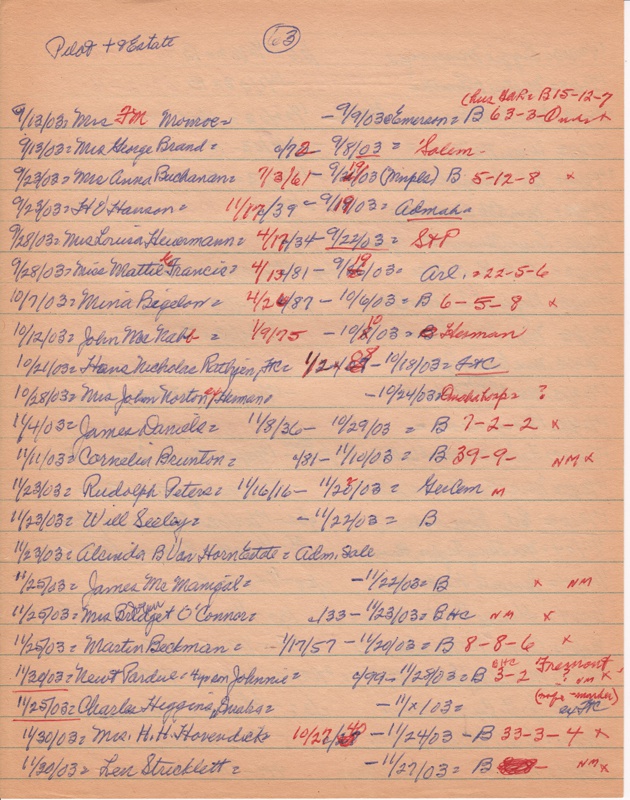 Pilot + Estate 103
Chas Bar = B 15-12-7
9/13/03 = Mrs FM Monroe = - 9/9/03 Emerson = B 63-3-
9/13/03 = Mrs George Brand = /72 9/8/03 = Salem -
9/23/03 = Mrs Anna Buchanan = 7/3/61 - 9/ /03 (Mrs ) B 5-12-8 x
9/23/03 = H E Hanson = 11/17/39 - 9/19/03 = Admah
9/28/03 = Mrs Louisa Heuermann = 4/17/34 - 9/22/03 = StP
9/28/03 = Miss Mattie Francis = 4/13/81 - 9/19/03 = Arl. = 22-5-6
10/7/03 = Mina Bigelow = 4/26/87 - 10/6/03 = B 6-5-8 x
10/12/03 = John Mac Nabb = 1/9/75 - 10/10/03 = Herman
10/21/03 = Hans Nicholas Rathjen, FtC = 1/24/88 - 10/18/03 = FtC
10/28/03 = Mrs John Norton, ex Herman - 10/24/03 = ?
11/4/03 = James Daniels = 11/8/36 - 10/29/03 = B 7-2-2 x
11/11/03 = Cornelia Brunton = /81 - 11/10/03 = B 39-9- NM x
11/23/03 = Rudolph Peters = 11/16/16 - 11/20/03 = GerCem M
11/23/03 = Will Seeley = - 11/22/03 = B
11/23/03 = Alcinda B Van Horn Estate = Adm. Sale
11/25/03 = James Mc Manigal = - 11/22/03 = B x NM
11/25/03 = Mrs John Bridget O'Connor = /33 - 11/23/03 = BHC NM x
11/25/03 = Martin Beckman = 1/17/57 - 11/20/03 = B 8-8-6 x
11/30/03 = Newt Pardue, Johnnie = /99 - 11/28/03 = B BHC 3-2 Fremont ? NM x
11/25/03 = Charles Higgins, = - 11/x/03 = (nofo - murder) ex FtC
11/30/03 = Mrs. H. H. Hovendick 10/27/40 - 11/24/03 - B 33-3-4 x
11/30/03 = Len Stricklett = - 11/27/03 = B - NM x